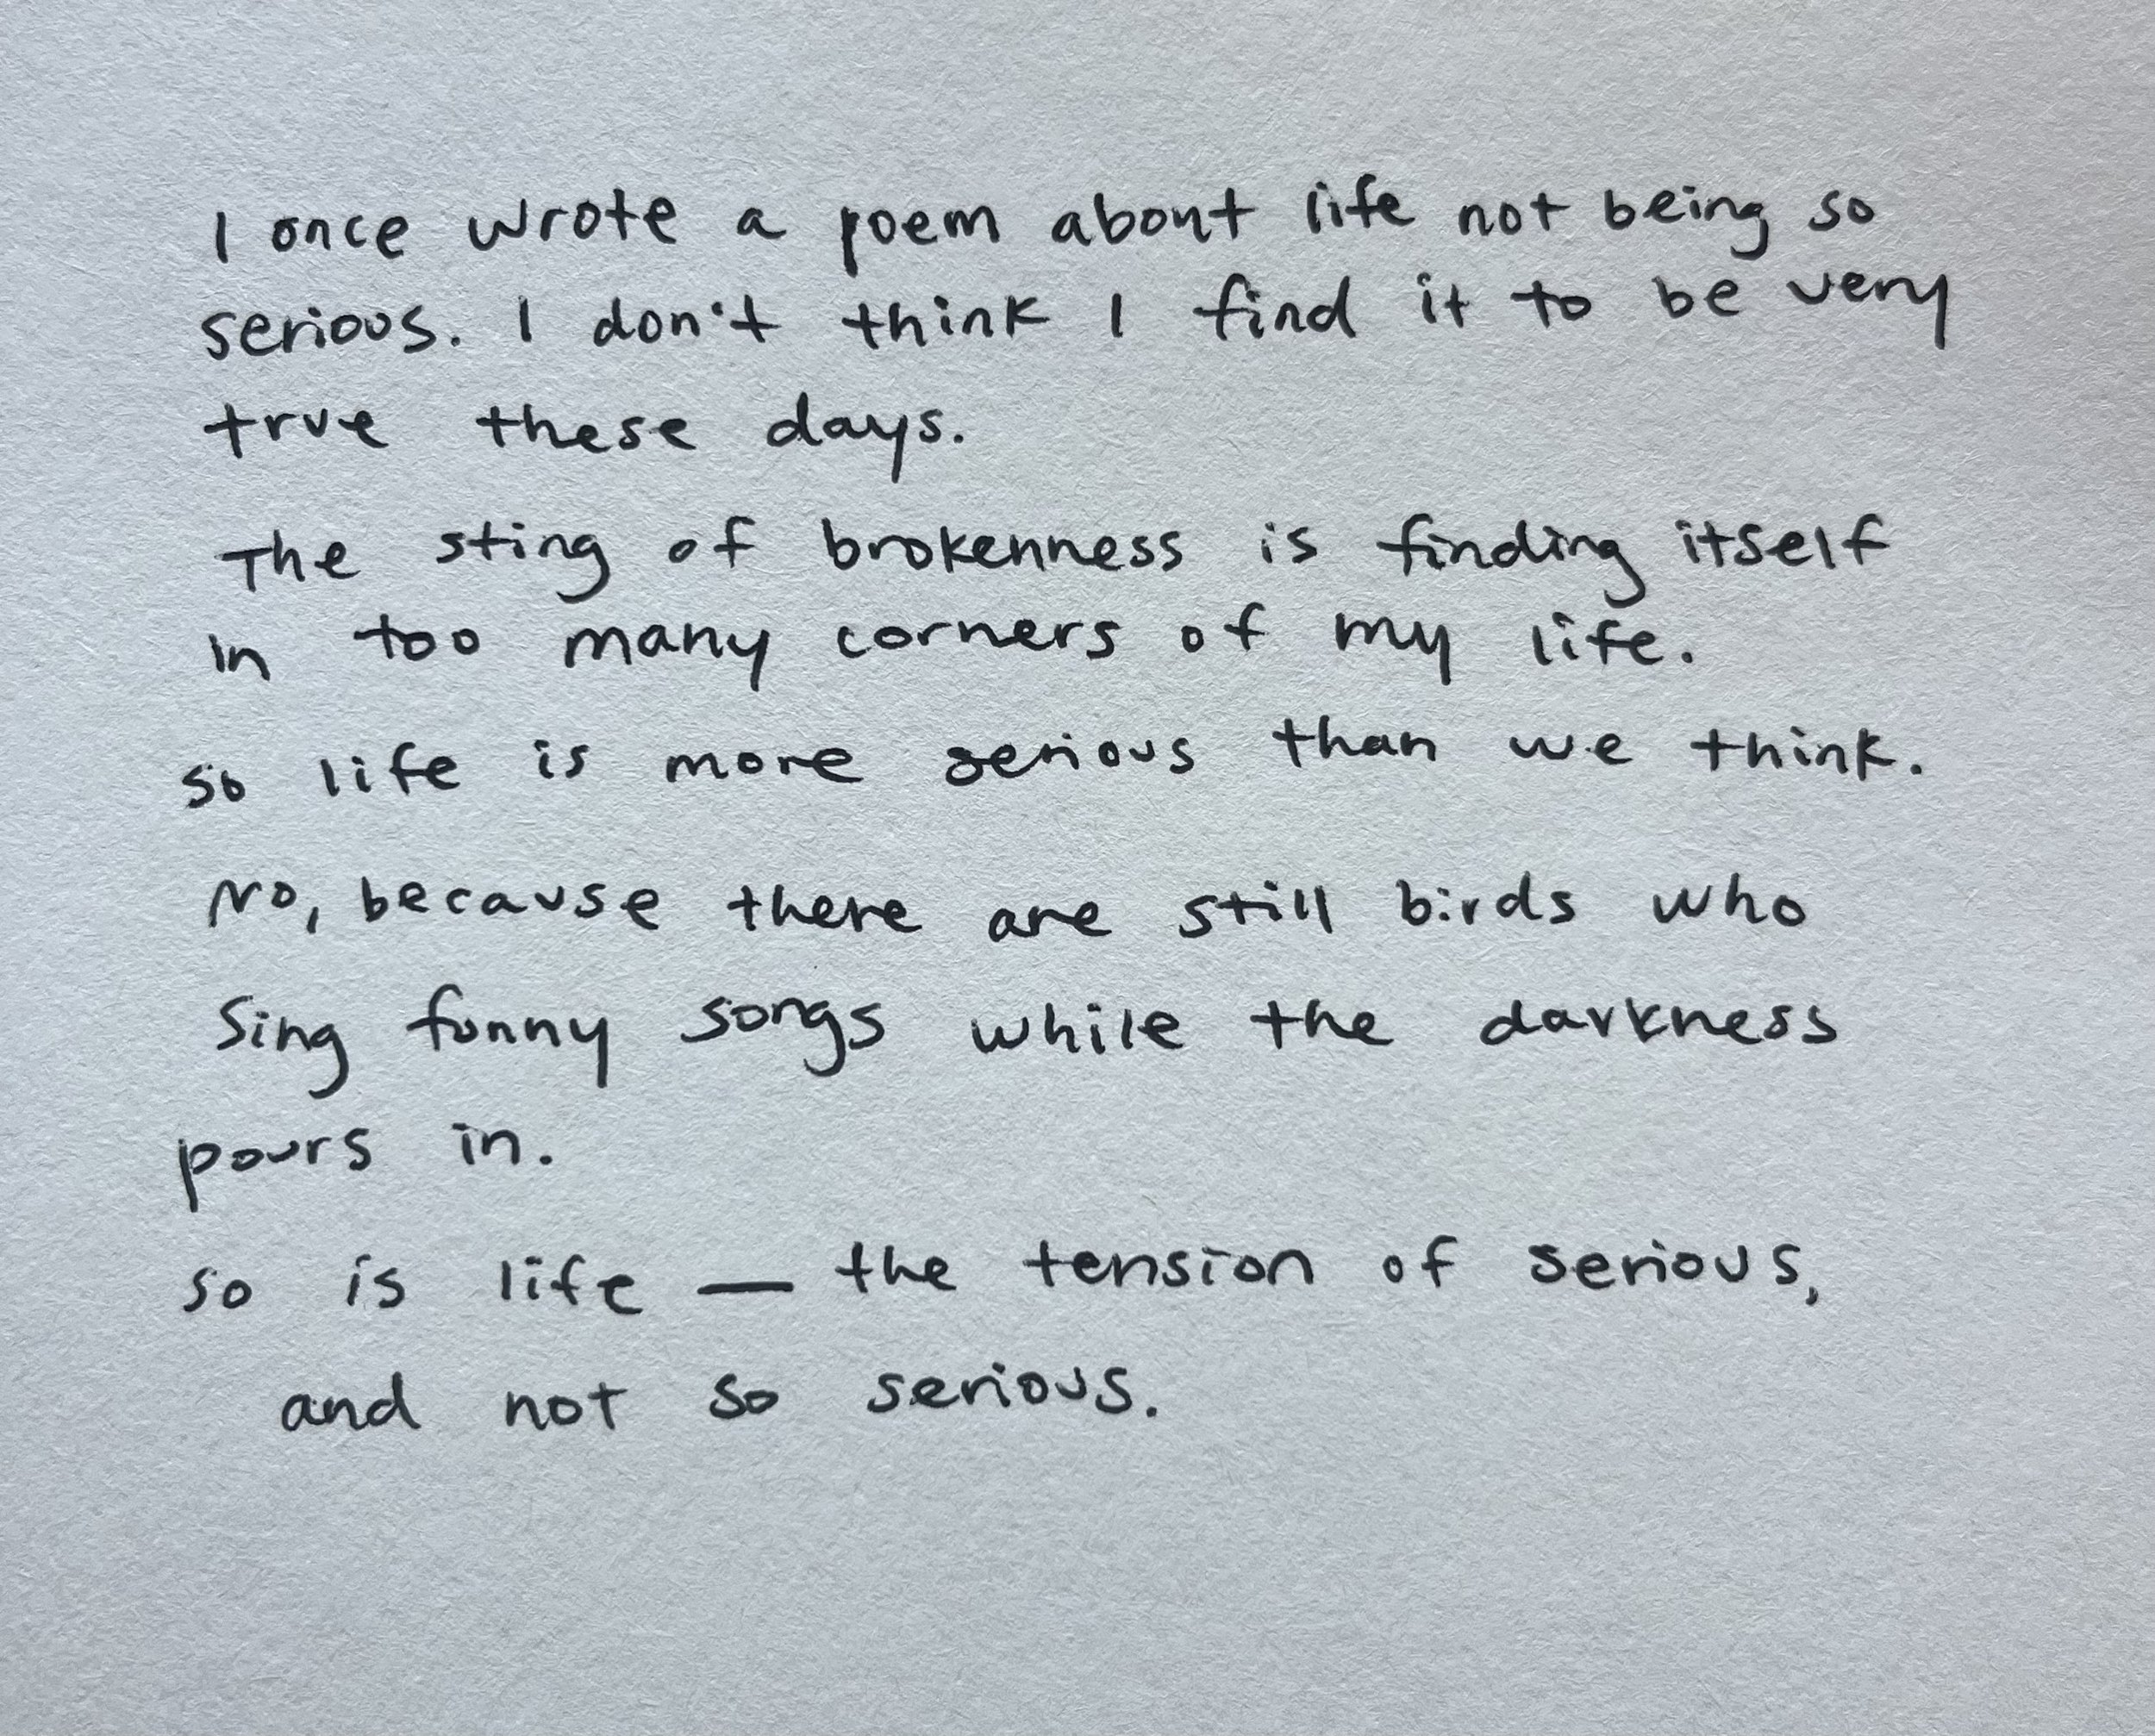 I once wrote a poem about life not being so
serious. I don't think I find it to be very
true these days.
The sting of brokenness is finding itself
in too many corners of my life.
so life is more serious than we think.
No, because there are still birds who
Sing funny songs while the darkness
pours in.
so is life — the tension of serious,
and not so serious.